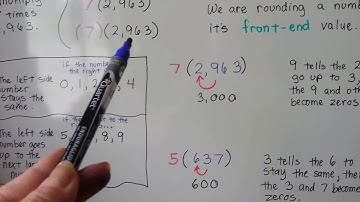 multiply
times
,963.
7 (2,963)
(7)(2,963)
We are rounding a num
it's front-end value.
if the numbe
the right
The left side
number
stays the
same.
0, 1, 2, 4
The left
side
number goes
up to
the next
5 8, 9
7 (2,963)
3,000
9 tells the 2
go up to 3,
the 9 and oth
become zeros
5(637)
600
3 tells the 6 to
stay the same, then
the 3 and 7 become
zeros.